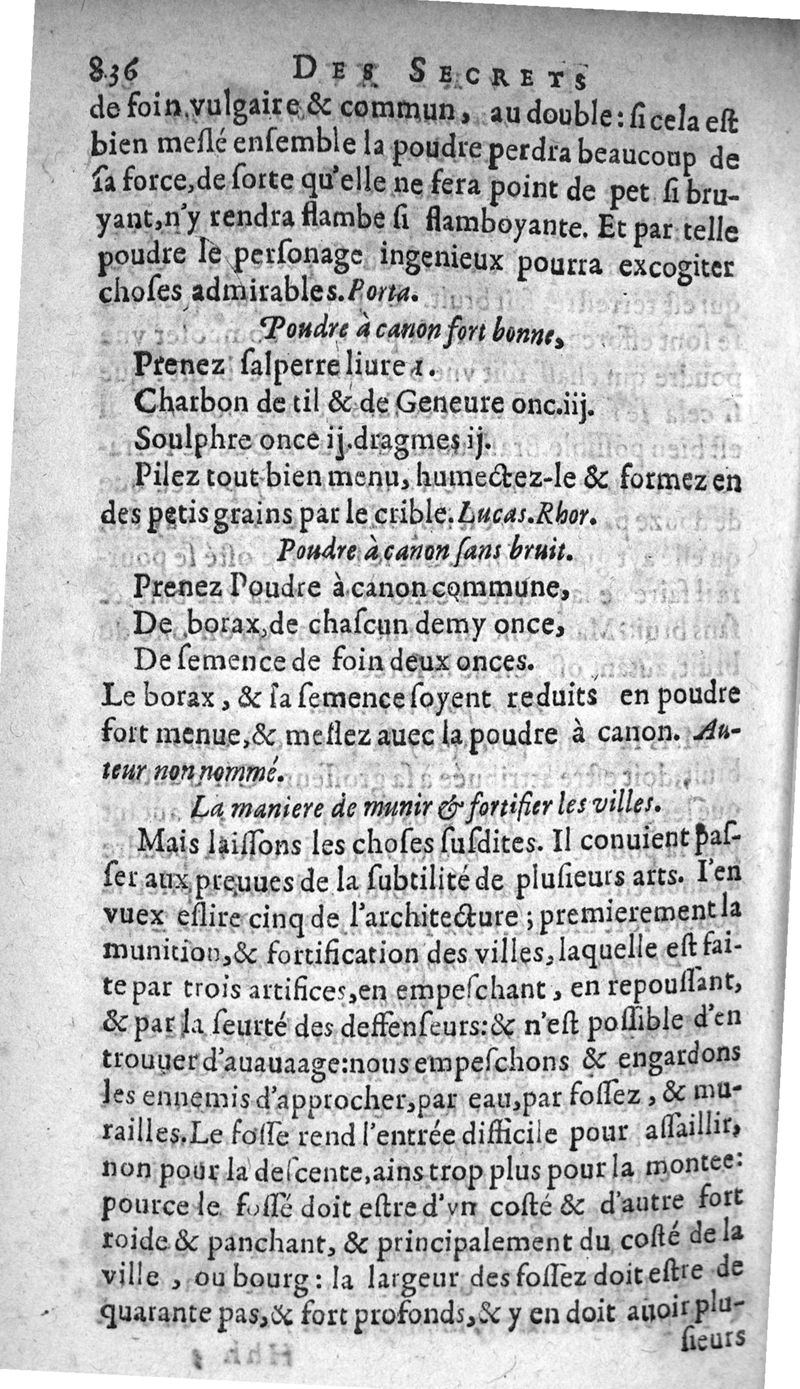 836 DES SECRETS
de foin, vulgaire & commun, au double: ſi cela eſt
bien meſlé enſemble la poudre perdra beaucoup de
ſa force, de ſorte qu'elle ne fera point de pet ſi bru-
yant, n'y rendra flambe ſi flamboyante. Et par telle
poudre le perſonage ingenieux pourra excogiter
choſes admirables. Porta.
Poudre à canon fort bonne,
Prenez ſalperre liure 1.
Charbon de til & de Geneure onc. iij.
Soulphre once ij. dragmes ij.
Pilez tout bien menu, humectez-le & formez en
des petis grains par le crible. Lucas. Rhor.
Poudre à canon ſans bruit.
Prenez Poudre à canon commune,
De borax, de chaſcun demy once,
De ſemence de foin deux onces.
Le borax, & ſa ſemence ſoyent reduits en poudre
fort menue, & meſlez auec la poudre à canon. Au-
teur non nommé.
La maniere de munir & fortifier les villes.
Mais laiſſons les choſes ſuſdites. Il conuient paſ-
ſer aux preuues de la ſubtilité de pluſieurs arts. I'en
vuex eſlire cinq de l'architecture; premierement la
munition, & fortification des villes, laquelle eſt fai-
te par trois artifices, en empeſchant, en repouſſant,
& par la ſeurté des deffenſeurs: & n'eſt poſſible d'en
trouuer d'auauaage: nous empeſchons & engardons
les ennemis d'approcher, par eau, par foſſez, & mu-
railles. Le foſſe rend l'entrée difficile pour aſſaillir,
non pour la deſcente, ains trop plus pour la montee:
pource le foſſé doit eſtre d'vn coſté & d'autre fort
roide & panchant, & principalement du coſté de la
ville, ou bourg: la largeur des foſſez doit eſtre de
quarante pas, & fort profonds, & y en doit auoir plu-
ſieurs